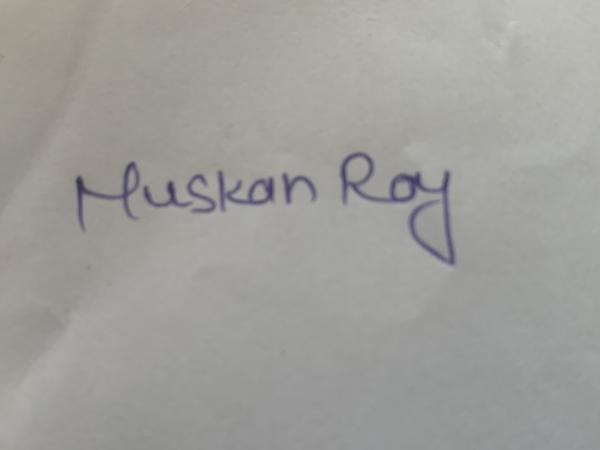 Muskan Roy